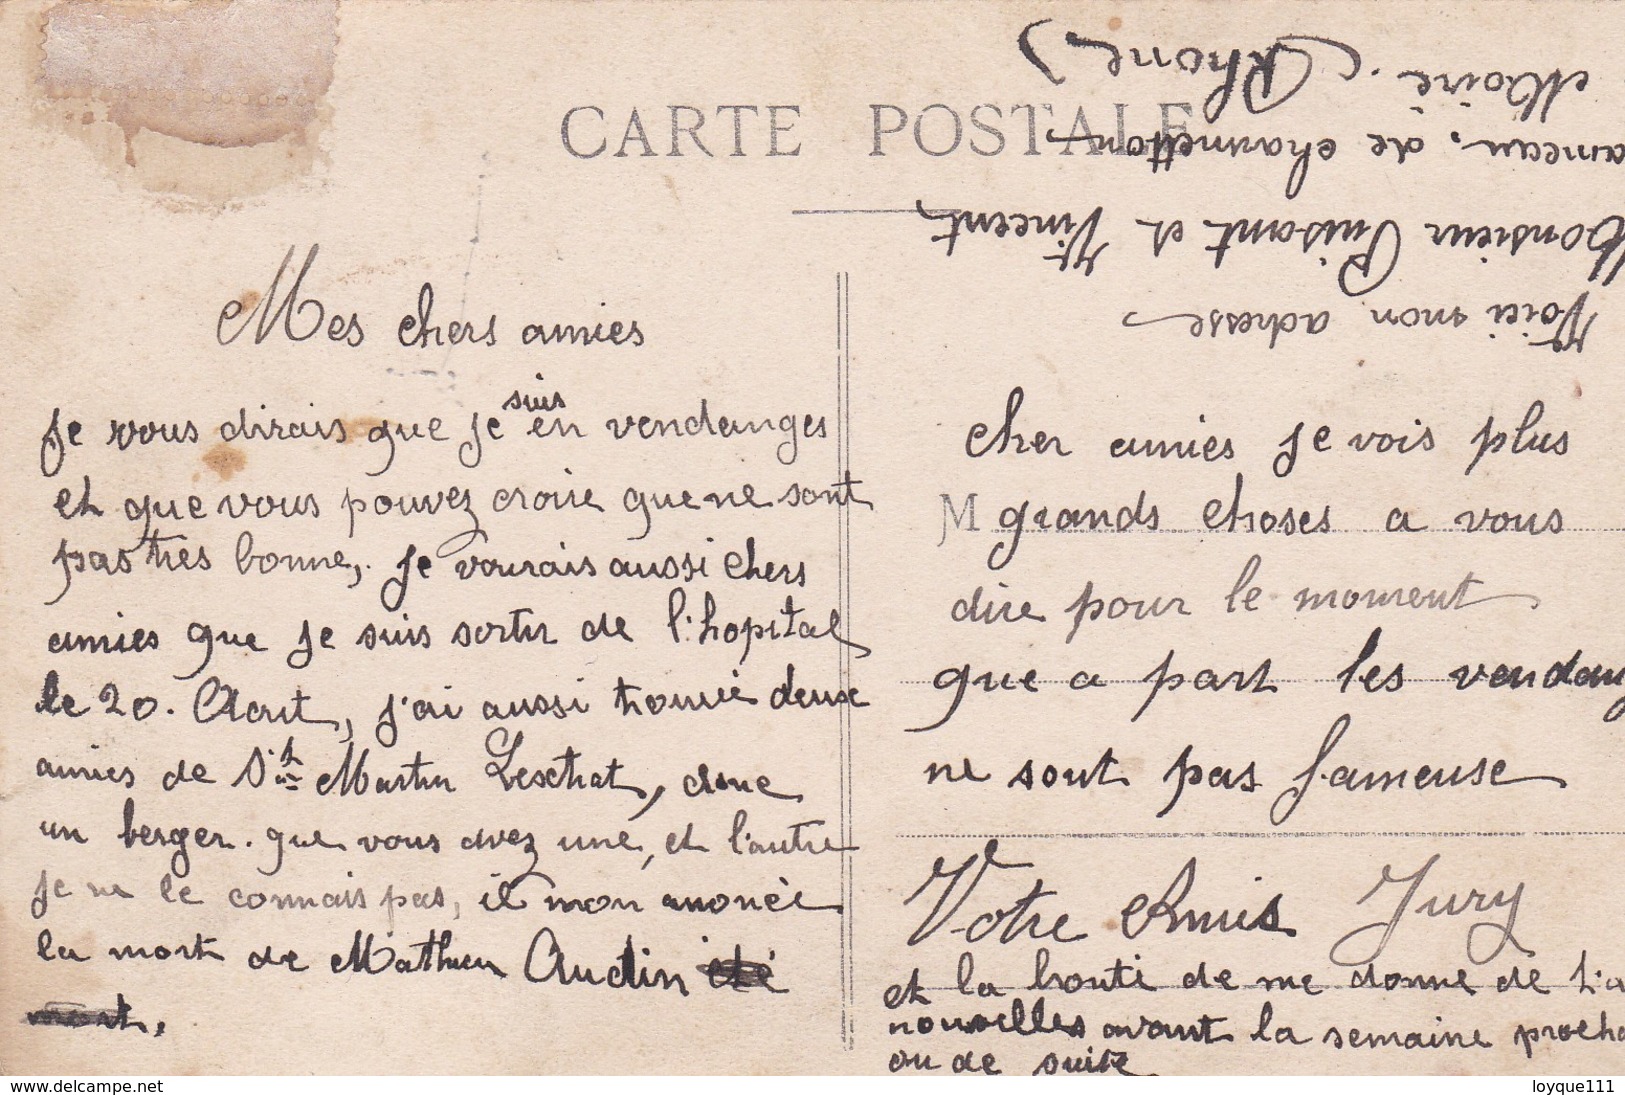 CARTE POSTALE
Mes chers amies
Je vous dirais que je suis en vendanges
et que vous pouvez croire que ne sont
pas tres bonne, je vourais aussi chers
amies que je suis sortir de l'hopital
le 20. Aout, j'ai aussi trouvé deux
amies de St Martin Lestrat, donc
un berger. que vous avez une, et l'autre
je ne le connais pas, il mon anoncée
la mort de Mathieu Audin été
mort.
Voici mon adresse
Monsieur Puisant et Vincent
ameau, de charmetton
Moiré. (Rhone)
cher amies je vois plus
M grands choses a vous
dire pour le moment
que a part les vendang
ne sont pas fameuse
Votre Amis Jury
et la bonté de me donne de
nouvelles avant la semaine procha
ou de suite
delcampe.net
loyque111